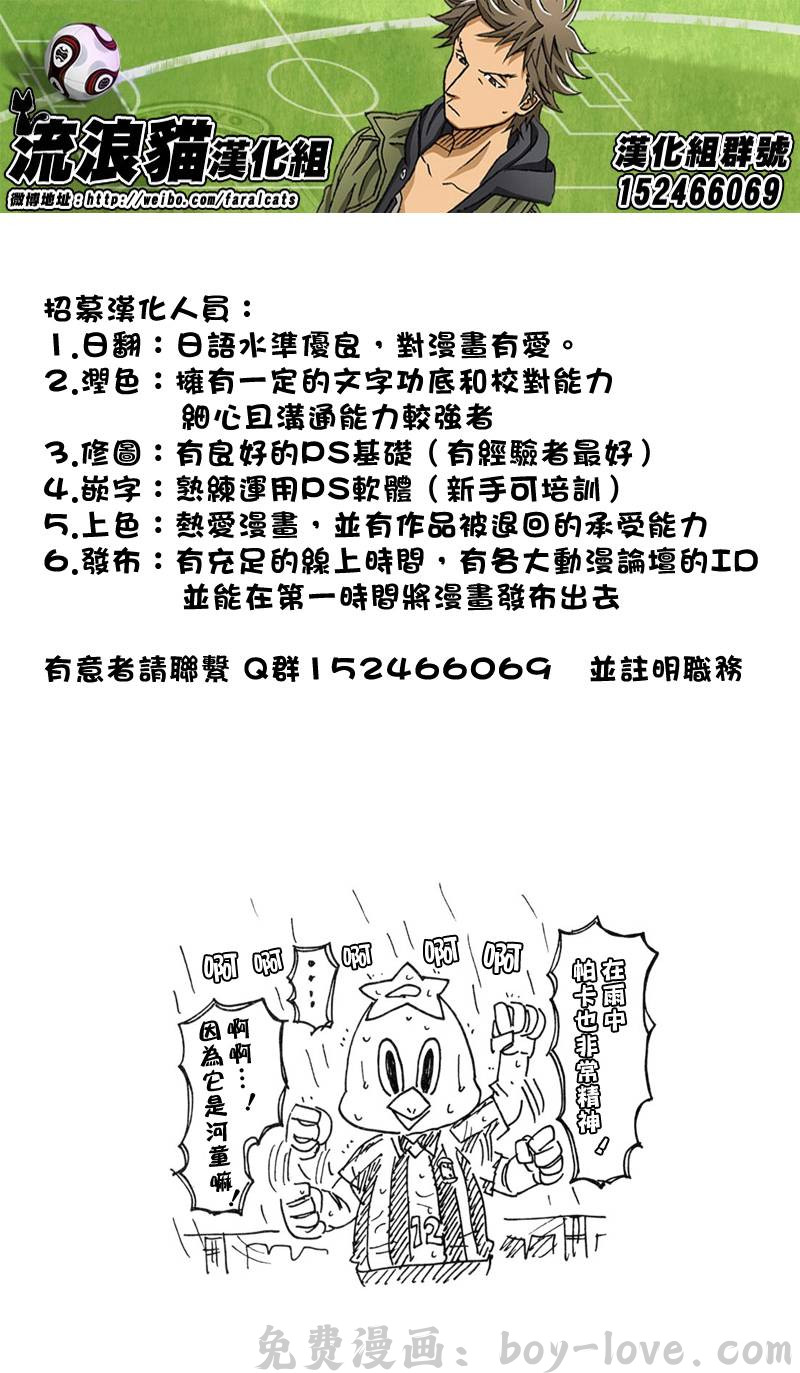 流浪貓漢化組
微博地址：http://weibo.com/faralcats
漢化組群號
152466069
招募漢化人員：
1.日翻：日語水準優良，對漫畫有愛。
2.潤色：擁有一定的文字功底和校對能力
細心且溝通能力較強者
3.修圖：有良好的PS基礎（有經驗者最好）
4.嵌字：熟練運用PS軟體（新手可培訓）
5.上色：熱愛漫畫，並有作品被退回的承受能力
6.發布：有充足的線上時間，有各大動漫論壇的ID
並能在第一時間將漫畫發布出去
有意者請聯繫 Q群152466069 並註明職務
在雨中
帕卡也非常精神！
啊 啊 啊 啊 啊
····
啊啊…！
因為它是河童嘛！
12
免费漫画：boy-love.com